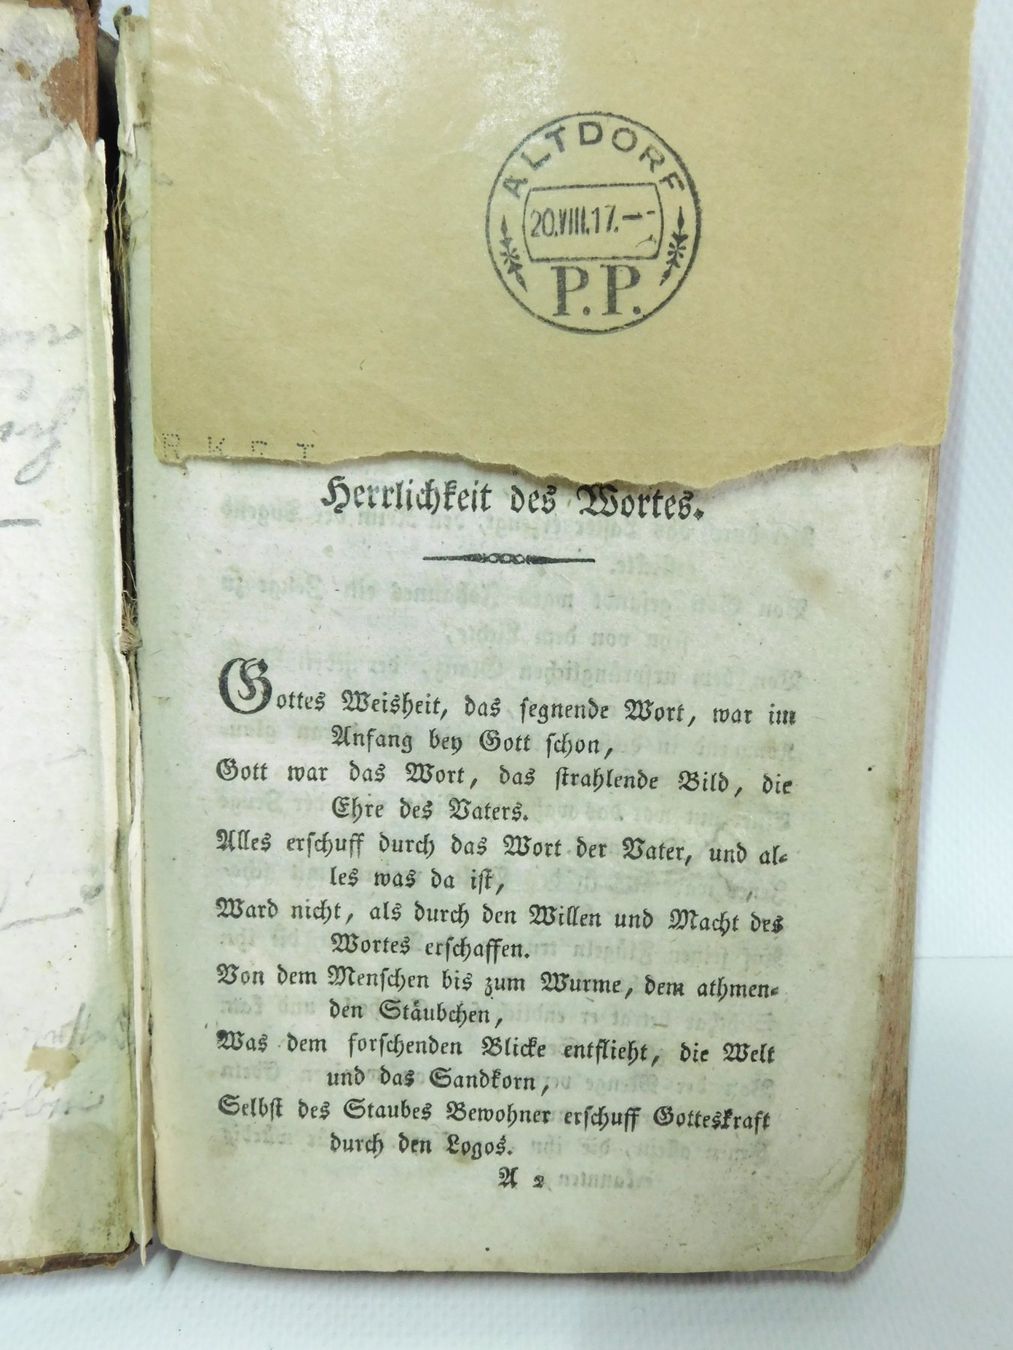 ALTDORF
20.VIII.17.–
P.P.
Herrlichkeit des Wortes.
Gottes Weisheit, das segnende Wort, war im
Anfang bey Gott schon,
Gott war das Wort, das strahlende Bild, die
Ehre des Vaters.
Alles erschuff durch das Wort der Vater, und al-
les was da ist,
Ward nicht, als durch den Willen und Macht des
Wortes erschaffen.
Von dem Menschen bis zum Wurme, dem athmen-
den Stäubchen,
Was dem forschenden Blicke entflieht, die Welt
und das Sandkorn,
Selbst des Staubes Bewohner erschuff Gotteskraft
durch den Logos.
A 2